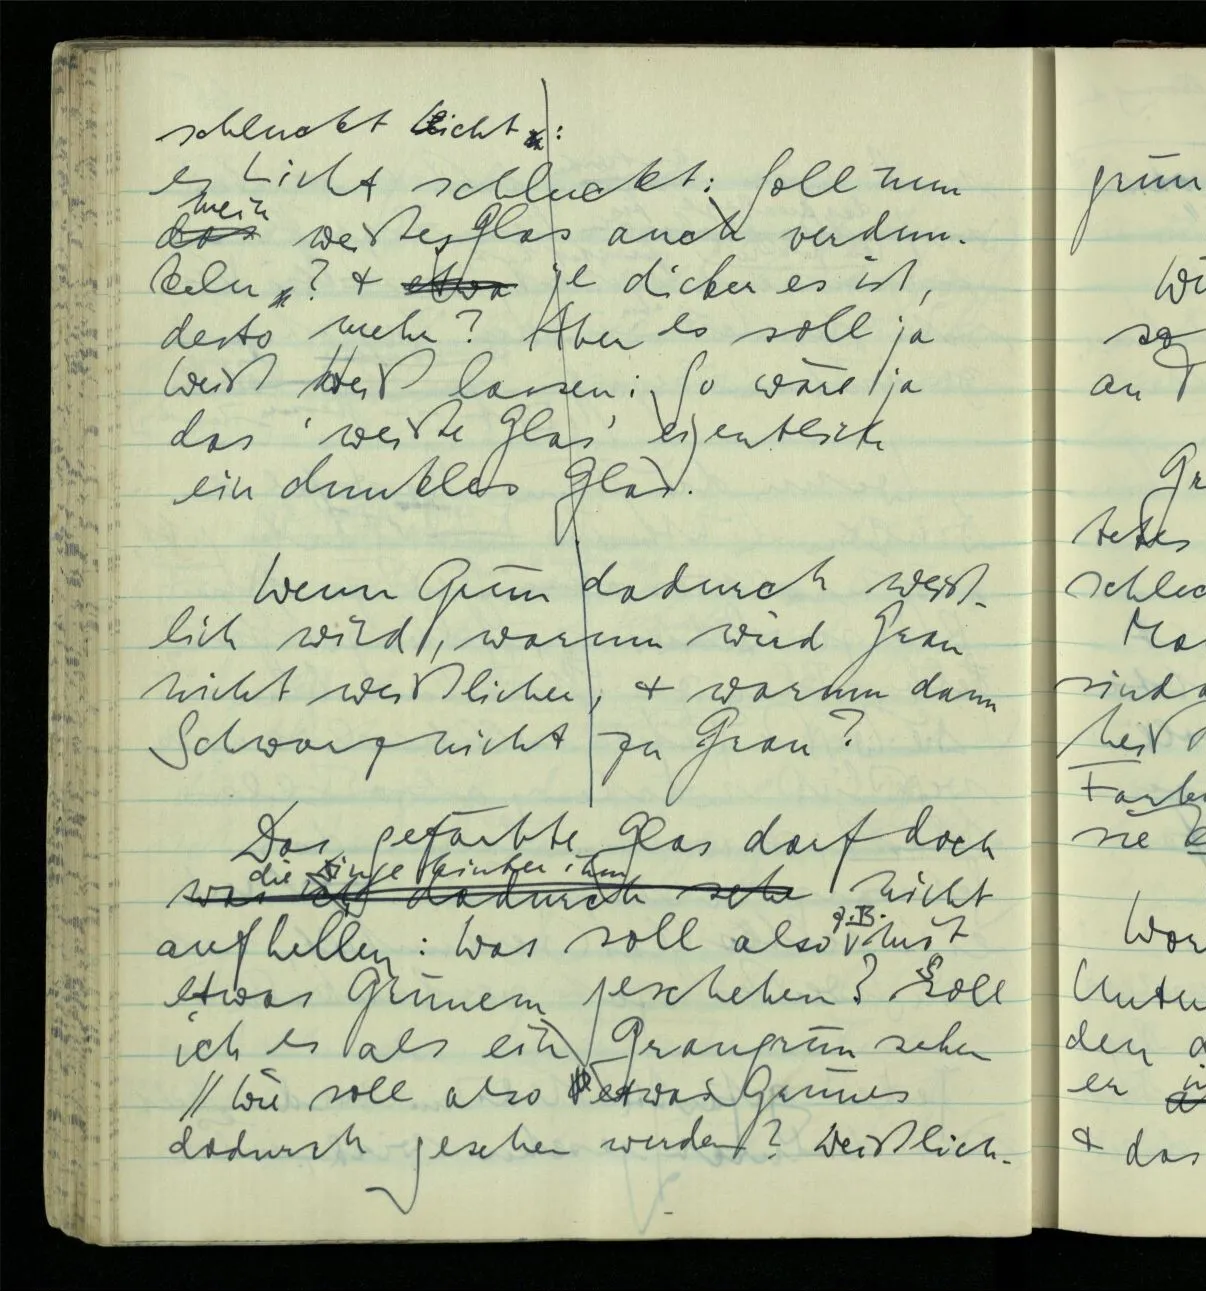 schluckt Licht:
es Licht schluckt: Soll nun
mein
das weißes Glas auch verdun-
keln? + etwa je dicker es ist,
desto mehr? Aber es soll ja
Weiß Weiß lassen: So wäre ja
das ‘weiße Glas’ eigentlich
ein dunkles Glas.
Wenn Grün dadurch weiß-
lich wird, warum wird Grau
nicht weißlicher, + warum dann
Schwarz nicht zu Grau?
Das gefärbte Glas darf doch
die Dinge hinter ihm
was ich dadurch sehe nicht
z.B.
aufhellen: was soll also mit
etwas Grünem geschehen? Soll
ich es als ein Graugrün sehen
// Wie soll also etwas Grünes
dadurch gesehen werden? Weißlich-
grün
Wi
so
an
Gr
tetes
schlec
Ma
sind
heiß
Farbe
sie
Wor
Unter
den
er
+ das